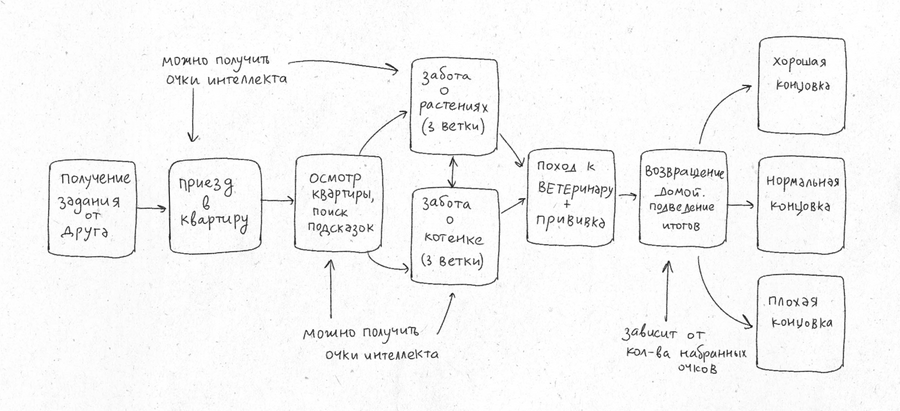 можно получить
очки интеллекта
получение
задания
от
друга
приезд
в
квартиру
осмотр
квартиры,
поиск
подсказок
забота
о
растениях
(3 ветки)
забота
о
котенке
(3 ветки)
можно получить
очки интеллекта
поход к
ветеринару
+
прививка
возвращение
домой.
подведение
итогов
зависит от
кол-ва набранных
очков
хорошая
концовка
нормальная
концовка
плохая
концовка